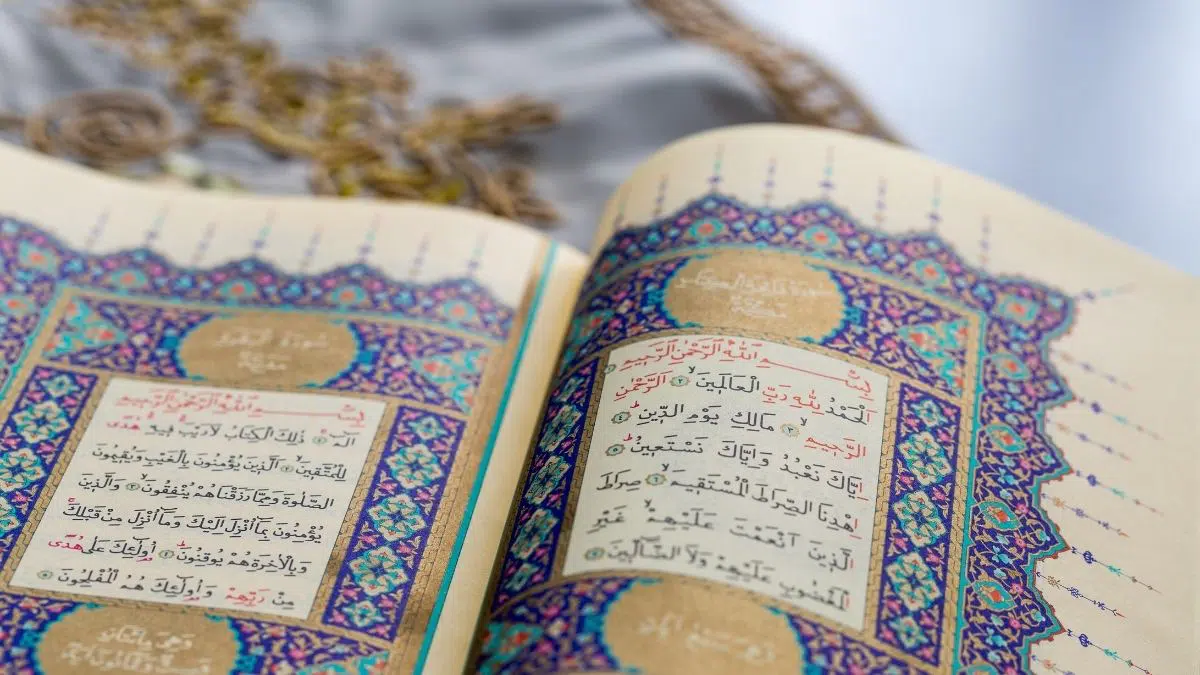 سُورَةُ
بِسْمِ اللّٰهِ الرَّحْمٰنِ الرَّحِيمِ
اَلْحَمْدُ لِلّٰهِ رَبِّ الْعَالَمِينَۙ ﴿٢﴾ اَلرَّحْمٰنِ
الرَّحِيمِۙ ﴿٣﴾ مَالِكِ يَوْمِ الدِّينِۜ ﴿٤﴾
اِيَّاكَ نَعْبُدُ وَاِيَّاكَ نَسْتَعِينُۜ ﴿٥﴾
اِهْدِنَا الصِّرَاطَ الْمُسْتَقِيمَۙ ﴿٦﴾ صِرَاطَ
الَّذِينَ اَنْعَمْتَ عَلَيْهِمْۙ غَيْرِ
الْمَغْضُوبِ عَلَيْهِمْ وَلَا الضَّالِّينَ ﴿٧﴾
سُورَةُ الْبَقَرَةِ
بِسْمِ اللّٰهِ الرَّحْمٰنِ الرَّحِيمِ
الٓمٓۜ ﴿١﴾ ذٰلِكَ الْكِتَابُ لَا رَيْبَۚ فِيهِۚ هُدًى
لِلْمُتَّقِينَۙ ﴿٢﴾ اَلَّذِينَ يُؤْمِنُونَ بِالْغَيْبِ وَيُقِيمُونَ
الصَّلٰوةَ وَمِمَّا رَزَقْنَاهُمْ يُنْفِقُونَۙ ﴿٣﴾ وَالَّذِينَ
يُؤْمِنُونَ بِمَٓا اُنْزِلَ اِلَيْكَ وَمَٓا اُنْزِلَ مِنْ قَبْلِكَۚ
وَبِالْاٰخِرَةِ هُمْ يُوقِنُونَۜ ﴿٤﴾ اُو۬لٰٓئِكَ عَلٰى هُدًى
مِنْ رَبِّهِمْ وَاُو۬لٰٓئِكَ هُمُ الْمُفْلِحُونَ ﴿٥﴾